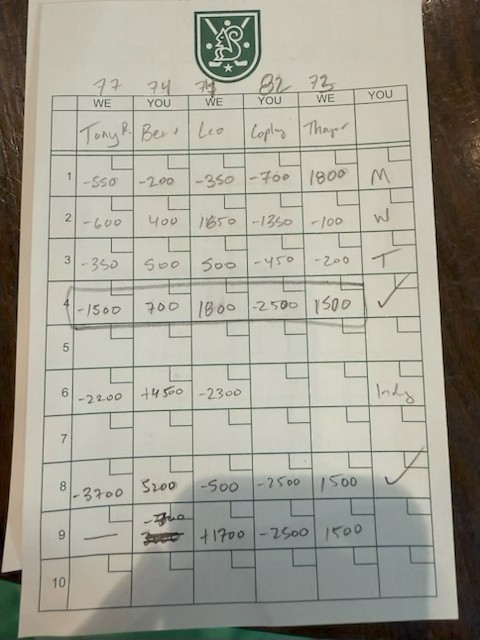 77 74 74 82 72
WE YOU WE YOU WE YOU
Tony R. Ben Leo Copley Thayer
1 -550 -200 -350 -700 1800 M
2 -600 400 1650 -1350 -100 W
3 -350 500 500 -450 -200 T
4 -1500 700 1800 -2500 1500 ✓
5
6 -2200 +4500 -2300 Indy
7
8 -3700 5200 -500 -2500 1500 ✓
9 — +1700 -2500 1500
10